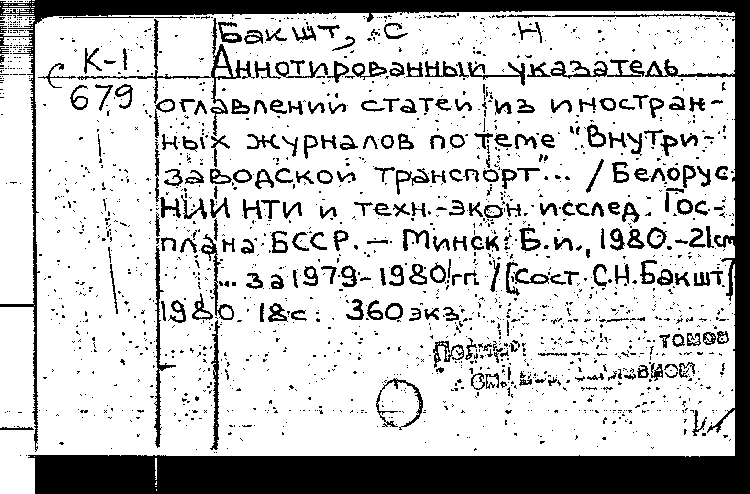 Бакшт, С Н
С К-1 Аннотированный указатель
679 оглавлений статей из иностран-
ных журналов по теме "Внутри-
заводской транспорт"... / Белорус.
НИИ НТИ и техн.-экон. исслед. Гос-
плана БССР. – Минск: Б.и., 1980. – 21см
... за 1979-1980 гг. / [Сост. С.Н.Бакшт]
1980. 18с. 360 экз.
томов
см.